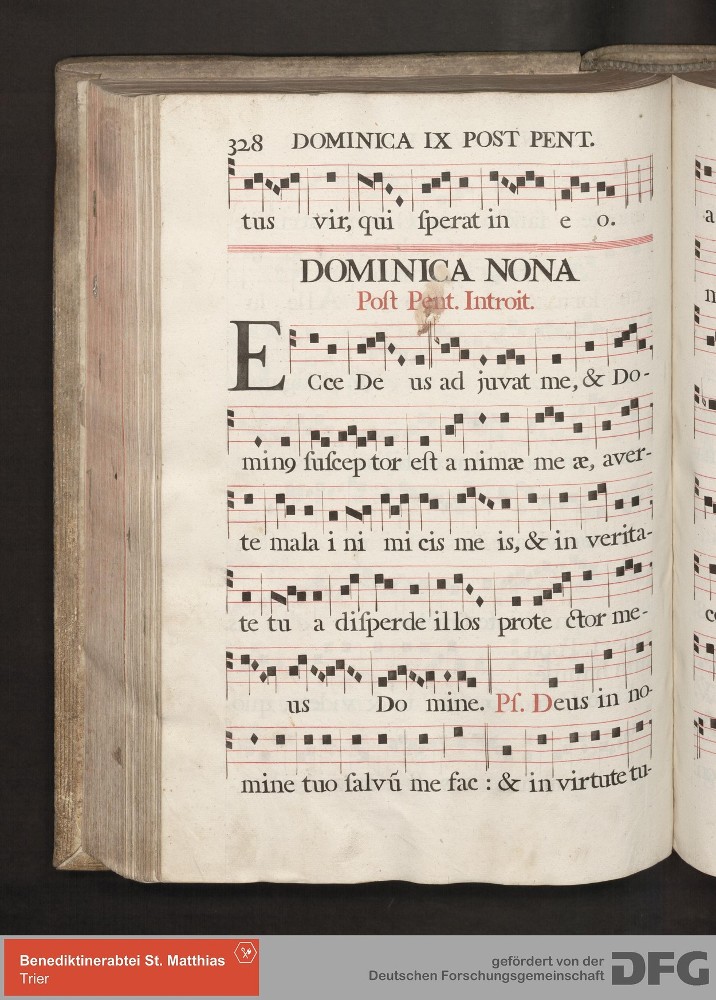 328 DOMINICA IX POST PENT.
tus vir, qui ſperat in e o.
DOMINICA NONA
Poſt Pent. Introit.
ECce De us ad juvat me, & Do-
minꝯ ſuſcep tor eſt a nimæ me æ, aver-
te mala i ni mi cis me is, & in verita-
te tu a diſperde il los prote ctor me-
us Do mine. Pſ. Deus in no-
mine tuo ſalvũ me fac : & in virtute tu-
a
Benediktinerabtei St. Matthias
Trier
gefördert von der
Deutschen Forschungsgemeinschaft
DFG